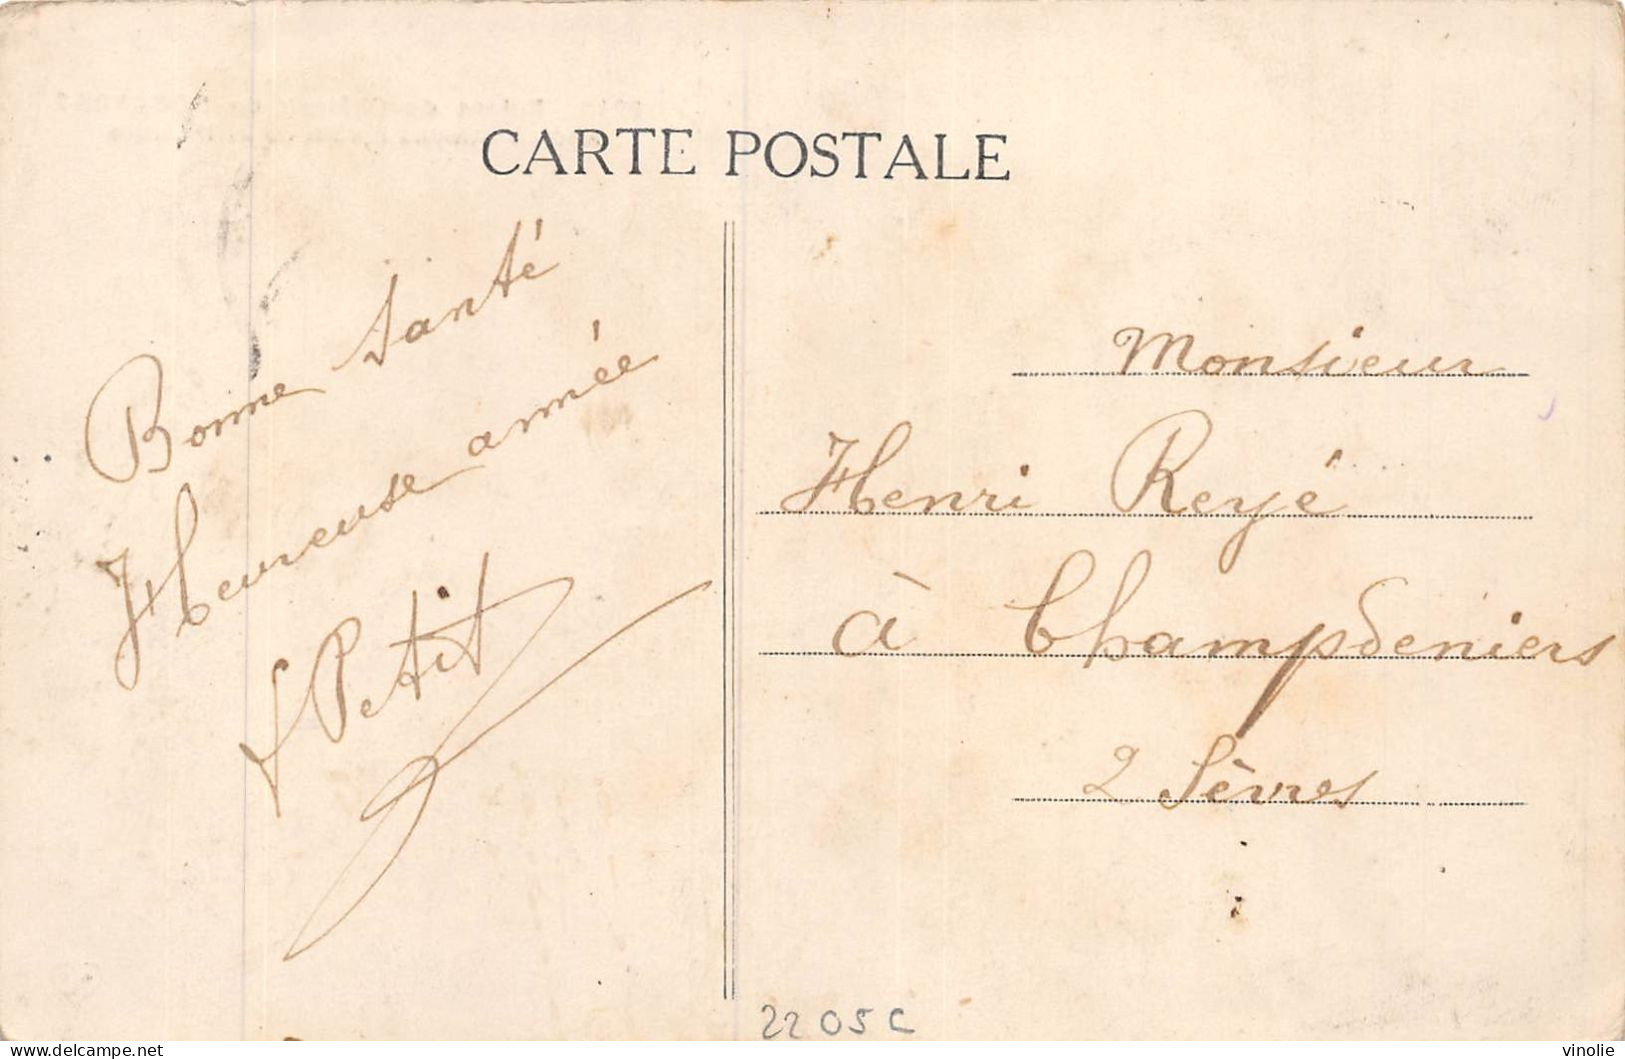 CARTE POSTALE
Bonne Santé
Heureuse année
Petit
Monsieur
Henri Reyé
à Champdeniers
2 Sèvres
2205C
vinolie